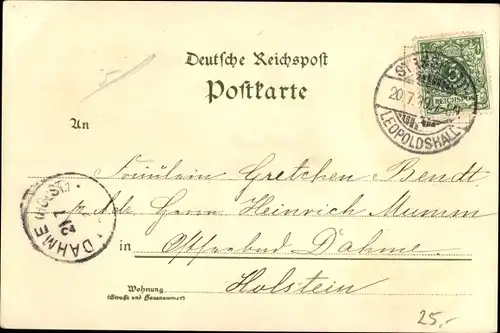 Deutsche Reichspost
Postkarte
An
Fräulein Gretchen Bendt.
p. Adr. Herrn Heinrich Mumm
in Ostseebad Dahme.
Wohnung
(Straße und Hausnummer)
Holstein
LEOPOLDSHALL
20.7.
REICHSPOST
DAHME (HOLST.)
25,-